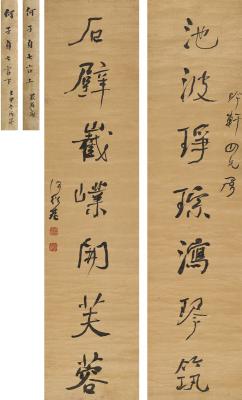 吟軒四兄屬
池波琤琮瀉琴筑
石壁巀嶫開芙蓉
何紹基
何子貞七言上
何子貞七言下